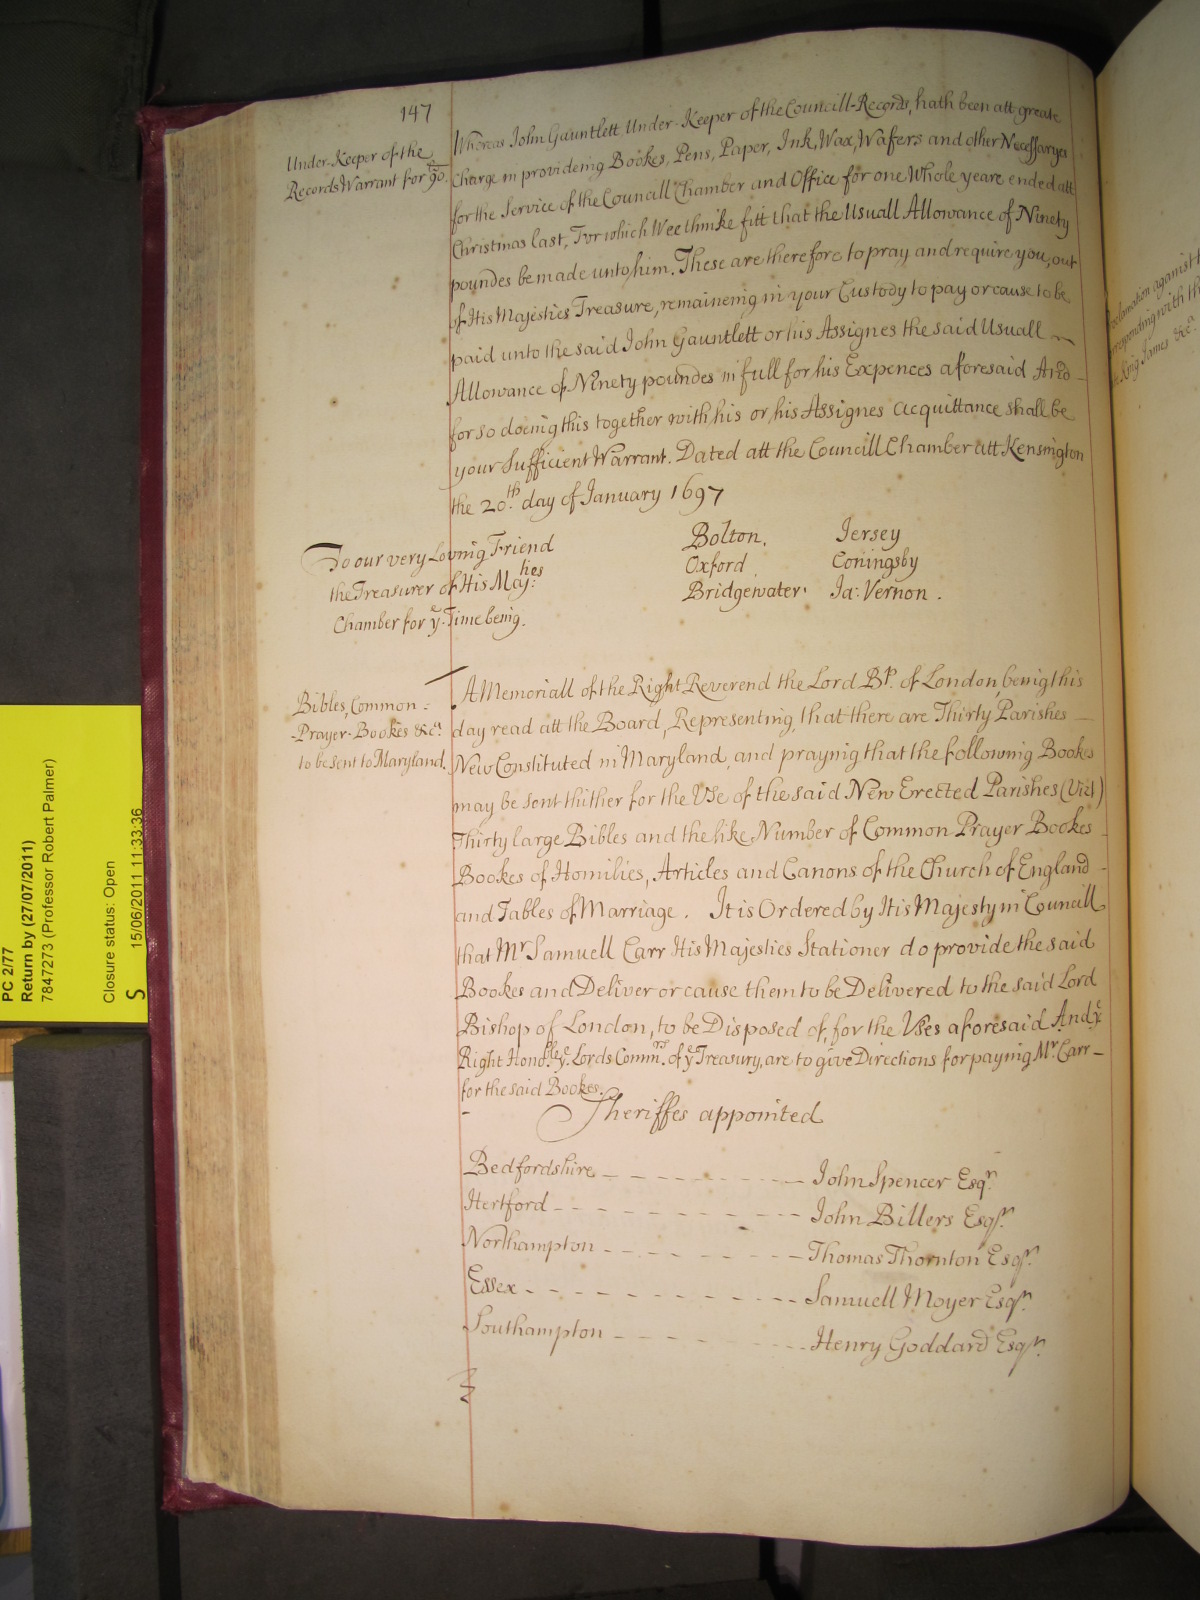 147
Under-Keeper of the
Records Warrant for £90.
Whereas John Gauntlett Under-Keeper of the Councill-Records, hath been att greate
Charge in provideing Bookes, Pens, Paper, Ink, Wax, Wafers and other Necessaryes
for the Service of the Councill Chamber and Office for one Whole yeare ended att
Christmas last, For which Wee thinke fitt that the Usuall Allowance of Ninety
poundes be made unto him. These are therefore to pray and require you, out
of His Majesties Treasure, remaineing in your Custody to pay or cause to be
paid unto the said John Gauntlett or his Assignes the said Usuall
Allowance of Ninety poundes in full for his Expences aforesaid And
for so doeing this together with his or his Assignes acquittance shall be
your Sufficient Warrant. Dated att the Councill Chamber att Kensington
the 20th. day of January 1697
To our very Loving Friend
the Treasurer of His Maj:ties
Chamber for ye. Time being.
Bolton. Jersey
Oxford Coningsby
Bridgewater. Ja: Vernon.
Bibles, Common =
-Prayer-Bookes &ca.
to be sent to Maryland.
A Memoriall of the Right Reverend the Lord Bp. of London, being this
day read att the Board, Representing, that there are Thirty Parishes
New Constituted in Maryland, and praying that the following Bookes
may be sent thither for the Use of the said New Erected Parishes (Vizt)
Thirty large Bibles and the like Number of Common Prayer Bookes
Bookes of Homilies, Articles and Canons of the Church of England
and Tables of Marriage. It is Ordered by His Majesty in Councill
that Mr Samuell Carr His Majesties Stationer do provide the said
Bookes and Deliver or cause them to be Delivered to the said Lord
Bishop of London, to be Disposed of, for the Uses aforesaid And ye
Right Honoble. ye. Lords Commrs. of ye Treasury, are to give Directions for paying Mr. Carr
for the said Bookes.
Sheriffes appointed
Bedfordshire - - - - - - - - John Spencer Esqr.
Hertford - - - - - - - - - - John Billers Esqr.
Northampton - - - - - - - - Thomas Thornton Esqr.
Essex - - - - - - - - - - - Samuell Moyer Esqr.
Southampton - - - - - - - - Henry Goddard Esqr.
Proclamation against
Corresponding with the
King James &ca
PC 2/77
Return by (27/07/2011)
7847273 (Professor Robert Palmer)
Closure status: Open
S 15/06/2011 11:33:36